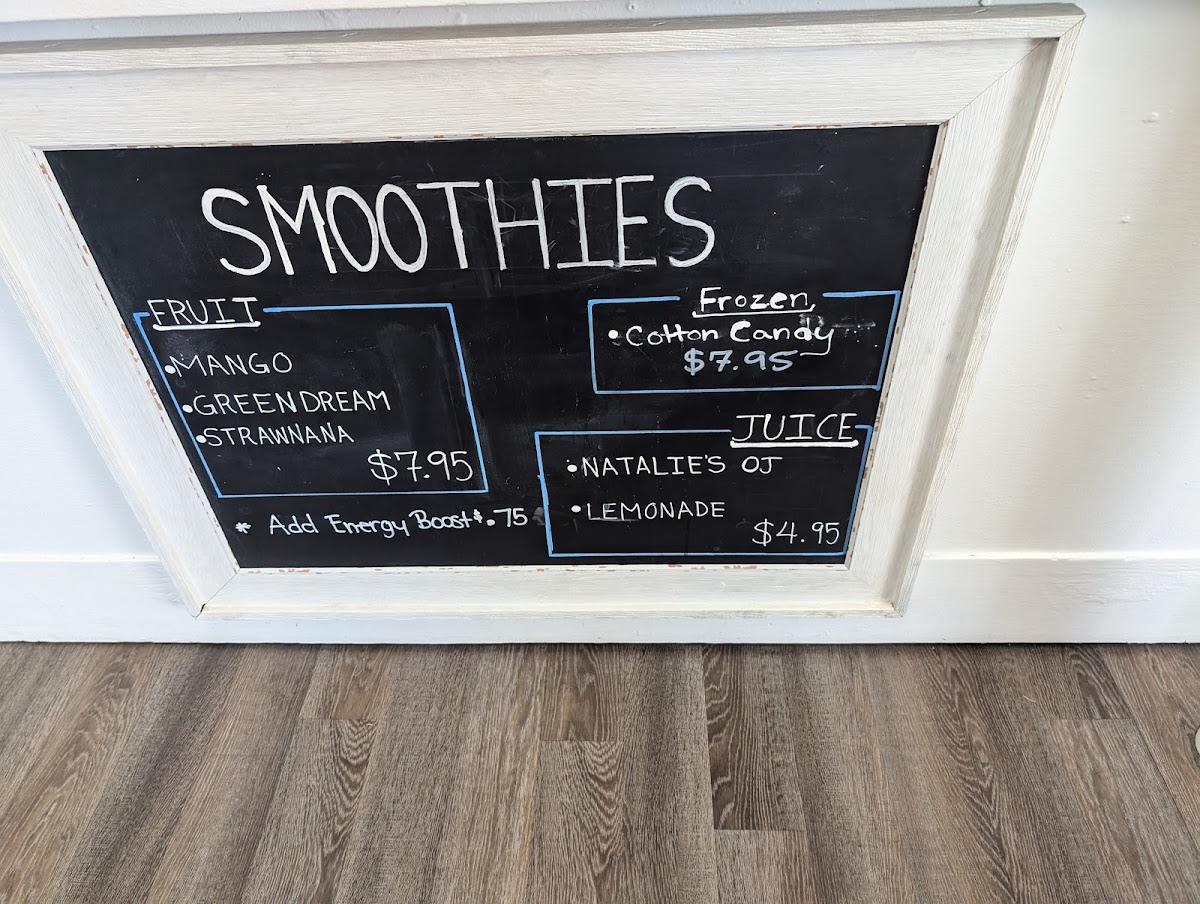 SMOOTHIES
FRUIT
•MANGO
•GREEN DREAM
•STRAWNANA
$7.95
* Add Energy Boost $.75
Frozen
•Cotton Candy
$7.95
JUICE
•NATALIE'S OJ
•LEMONADE
$4.95